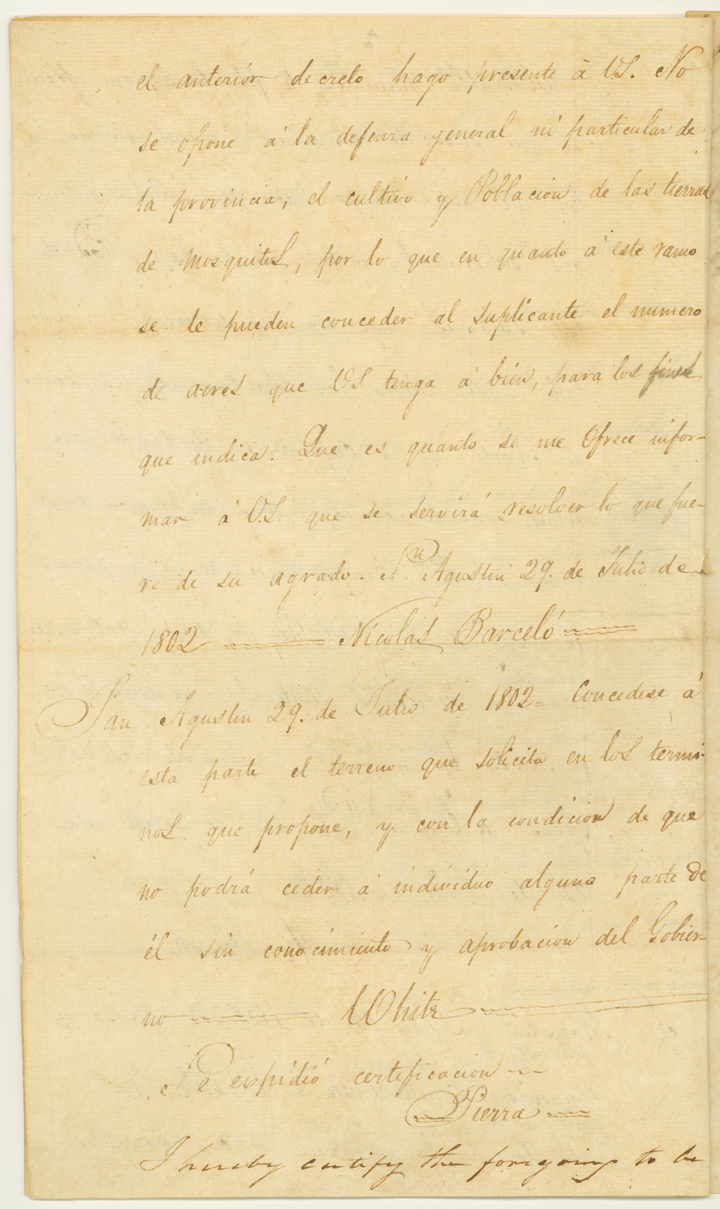 el anteriór decreto hago presente à VS. No
se opone á la defensa general ni particular de
la provincia, el cultivo y Poblacion de las tierras
de Mosquitos, por lo que en quanto á este ramo
se le pueden conceder al suplicante el numero
de acres que VS tenga á bién, para los fines
que indica. Que es quanto se me Ofrece infor-
mar á V.S. que se servirá resolver lo que fue-
re de su agrado. Sn Agustin 29. de Julio de
1802 Nicolas Barceló
San Agustin 29. de Julio de 1802= Concedese á
esta parte el terreno que solicita en los termi-
nos que propone, y con la condición de que
no podrá ceder á individuo alguno parte de
él sin conocimiento y aprobacion del Gobier-
no White
Se espidió certificacion
Pierra
I hereby certify the foregoing to be